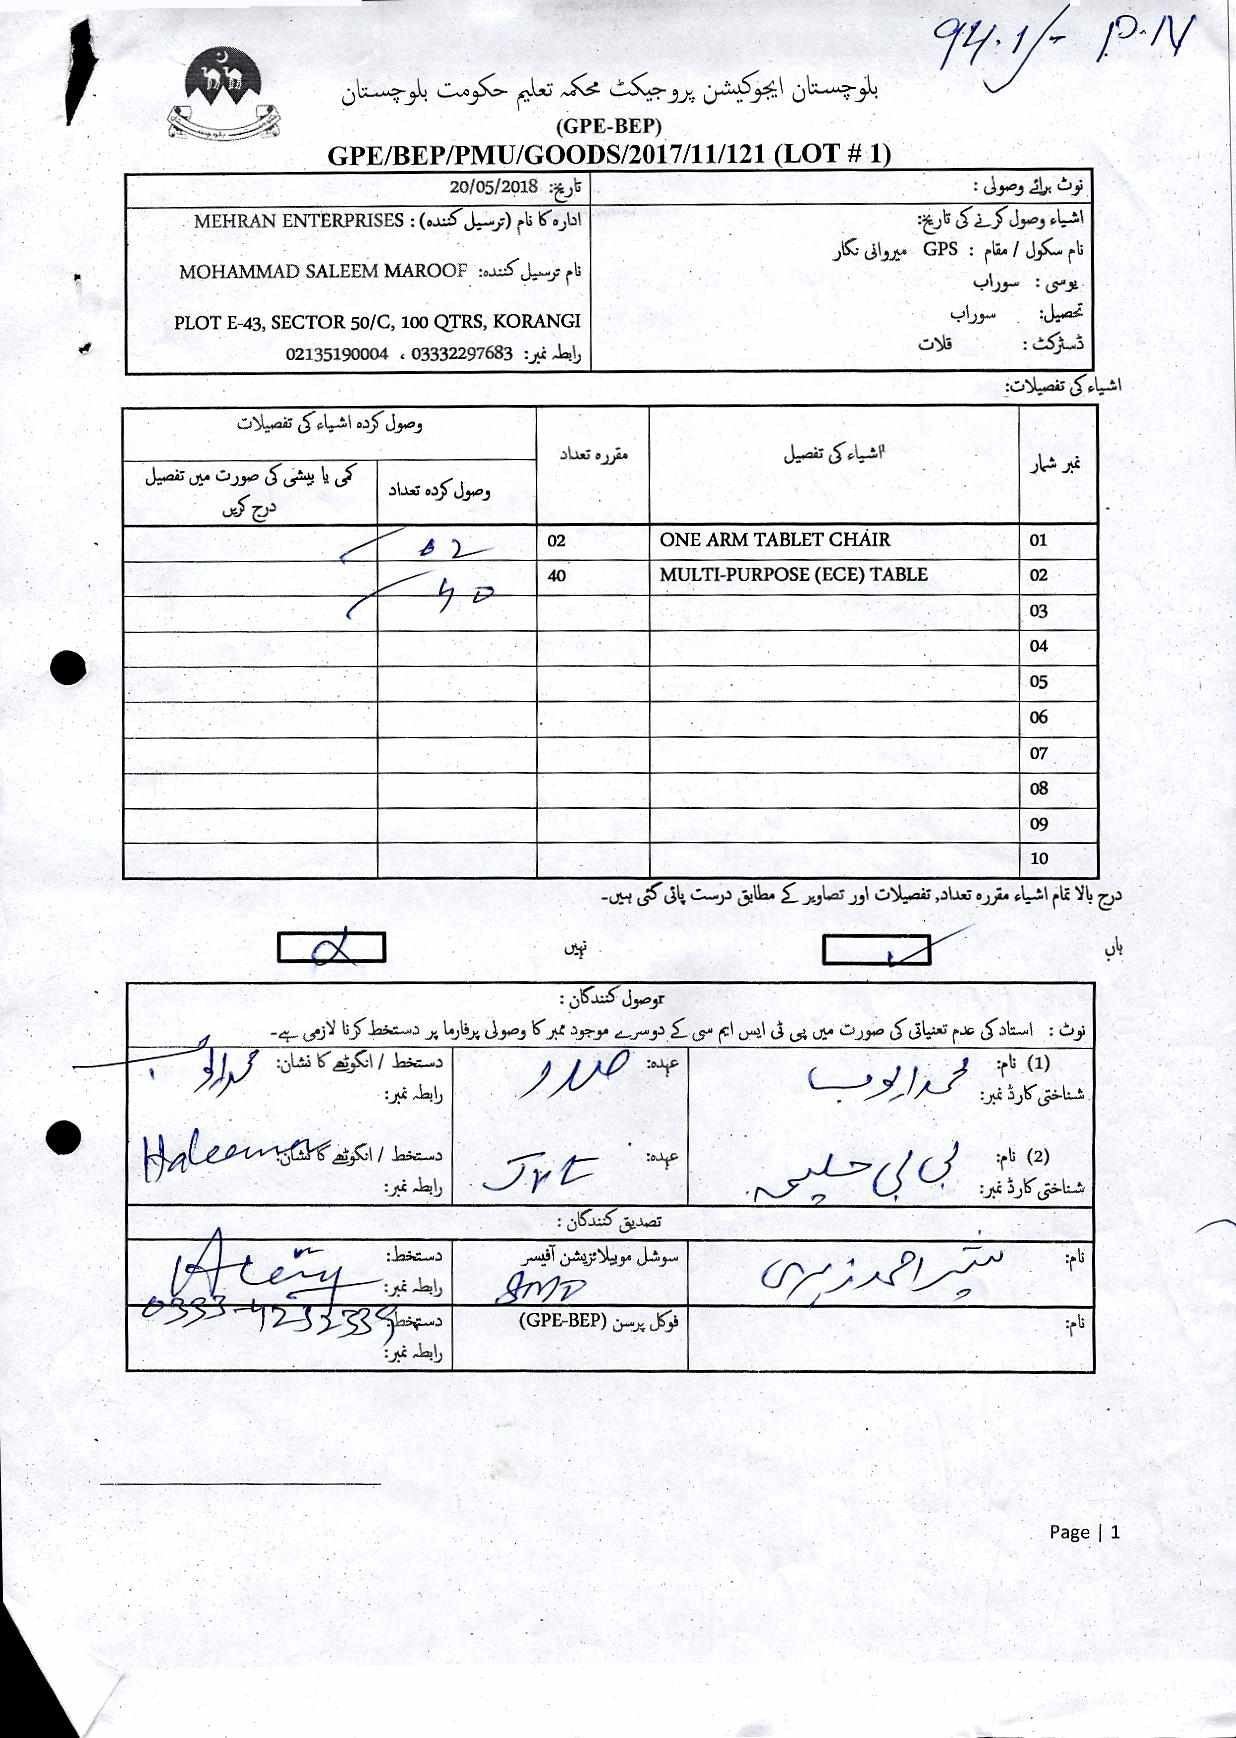 بلوچستان ایجوکیشن پروجیکٹ محکمہ تعلیم حکومت بلوچستان
(GPE-BEP)
GPE/BEP/PMU/GOODS/2017/11/121 (LOT # 1)
نوٹ برائے وصولی :
تاریخ: 20/05/2018
اشیاء وصول کرنے کی تاریخ:
نام سکول / مقام : GPS میروانی نگار
یوسی : سوراب
تحصیل: سوراب
ڈسٹرکٹ : قلات
ادارہ کا نام (ترسیل کنندہ) : MEHRAN ENTERPRISES
نام ترسیل کنندہ: MOHAMMAD SALEEM MAROOF
PLOT E-43, SECTOR 50/C, 100 QTRS, KORANGI
رابطہ نمبر: 03332297683 ، 02135190004
اشیاء کی تفصیلات:
نمبر شمار اشیاء کی تفصیل مقررہ تعداد وصول کردہ اشیاء کی تفصیلات
وصول کردہ تعداد کمی یا بیشی کی صورت میں تفصیل درج کریں
01 ONE ARM TABLET CHAIR 02 02
02 MULTI-PURPOSE (ECE) TABLE 40 40
03
04
05
06
07
08
09
10
درج بالا تمام اشیاء مقررہ تعداد, تفصیلات اور تصاویر کے مطابق درست پائی گئی ہیں۔
ہاں نہیں
وصول کنندگان :
نوٹ : استاد کی عدم تعنیاتی کی صورت میں پی ٹی ایس ایم سی کے دوسرے موجود ممبر کا وصولی پرفارما پر دستخط کرنا لازمی ہے۔
(1) نام: محمد ایوب عہدہ: صدر دستخط / انگوٹھے کا نشان: محمد ایوب
شناختی کارڈ نمبر: رابطہ نمبر:
(2) نام: بی بی حلیمہ عہدہ: JVT دستخط / انگوٹھے کا نشان: Haleema
شناختی کارڈ نمبر: رابطہ نمبر:
تصدیق کنندگان :
نام: احمد زہری سوشل موبیلائزیشن آفیسر دستخط:
SMO رابطہ نمبر:
نام: فوکل پرسن (GPE-BEP) دستخط:
رابطہ نمبر:
Page | 1